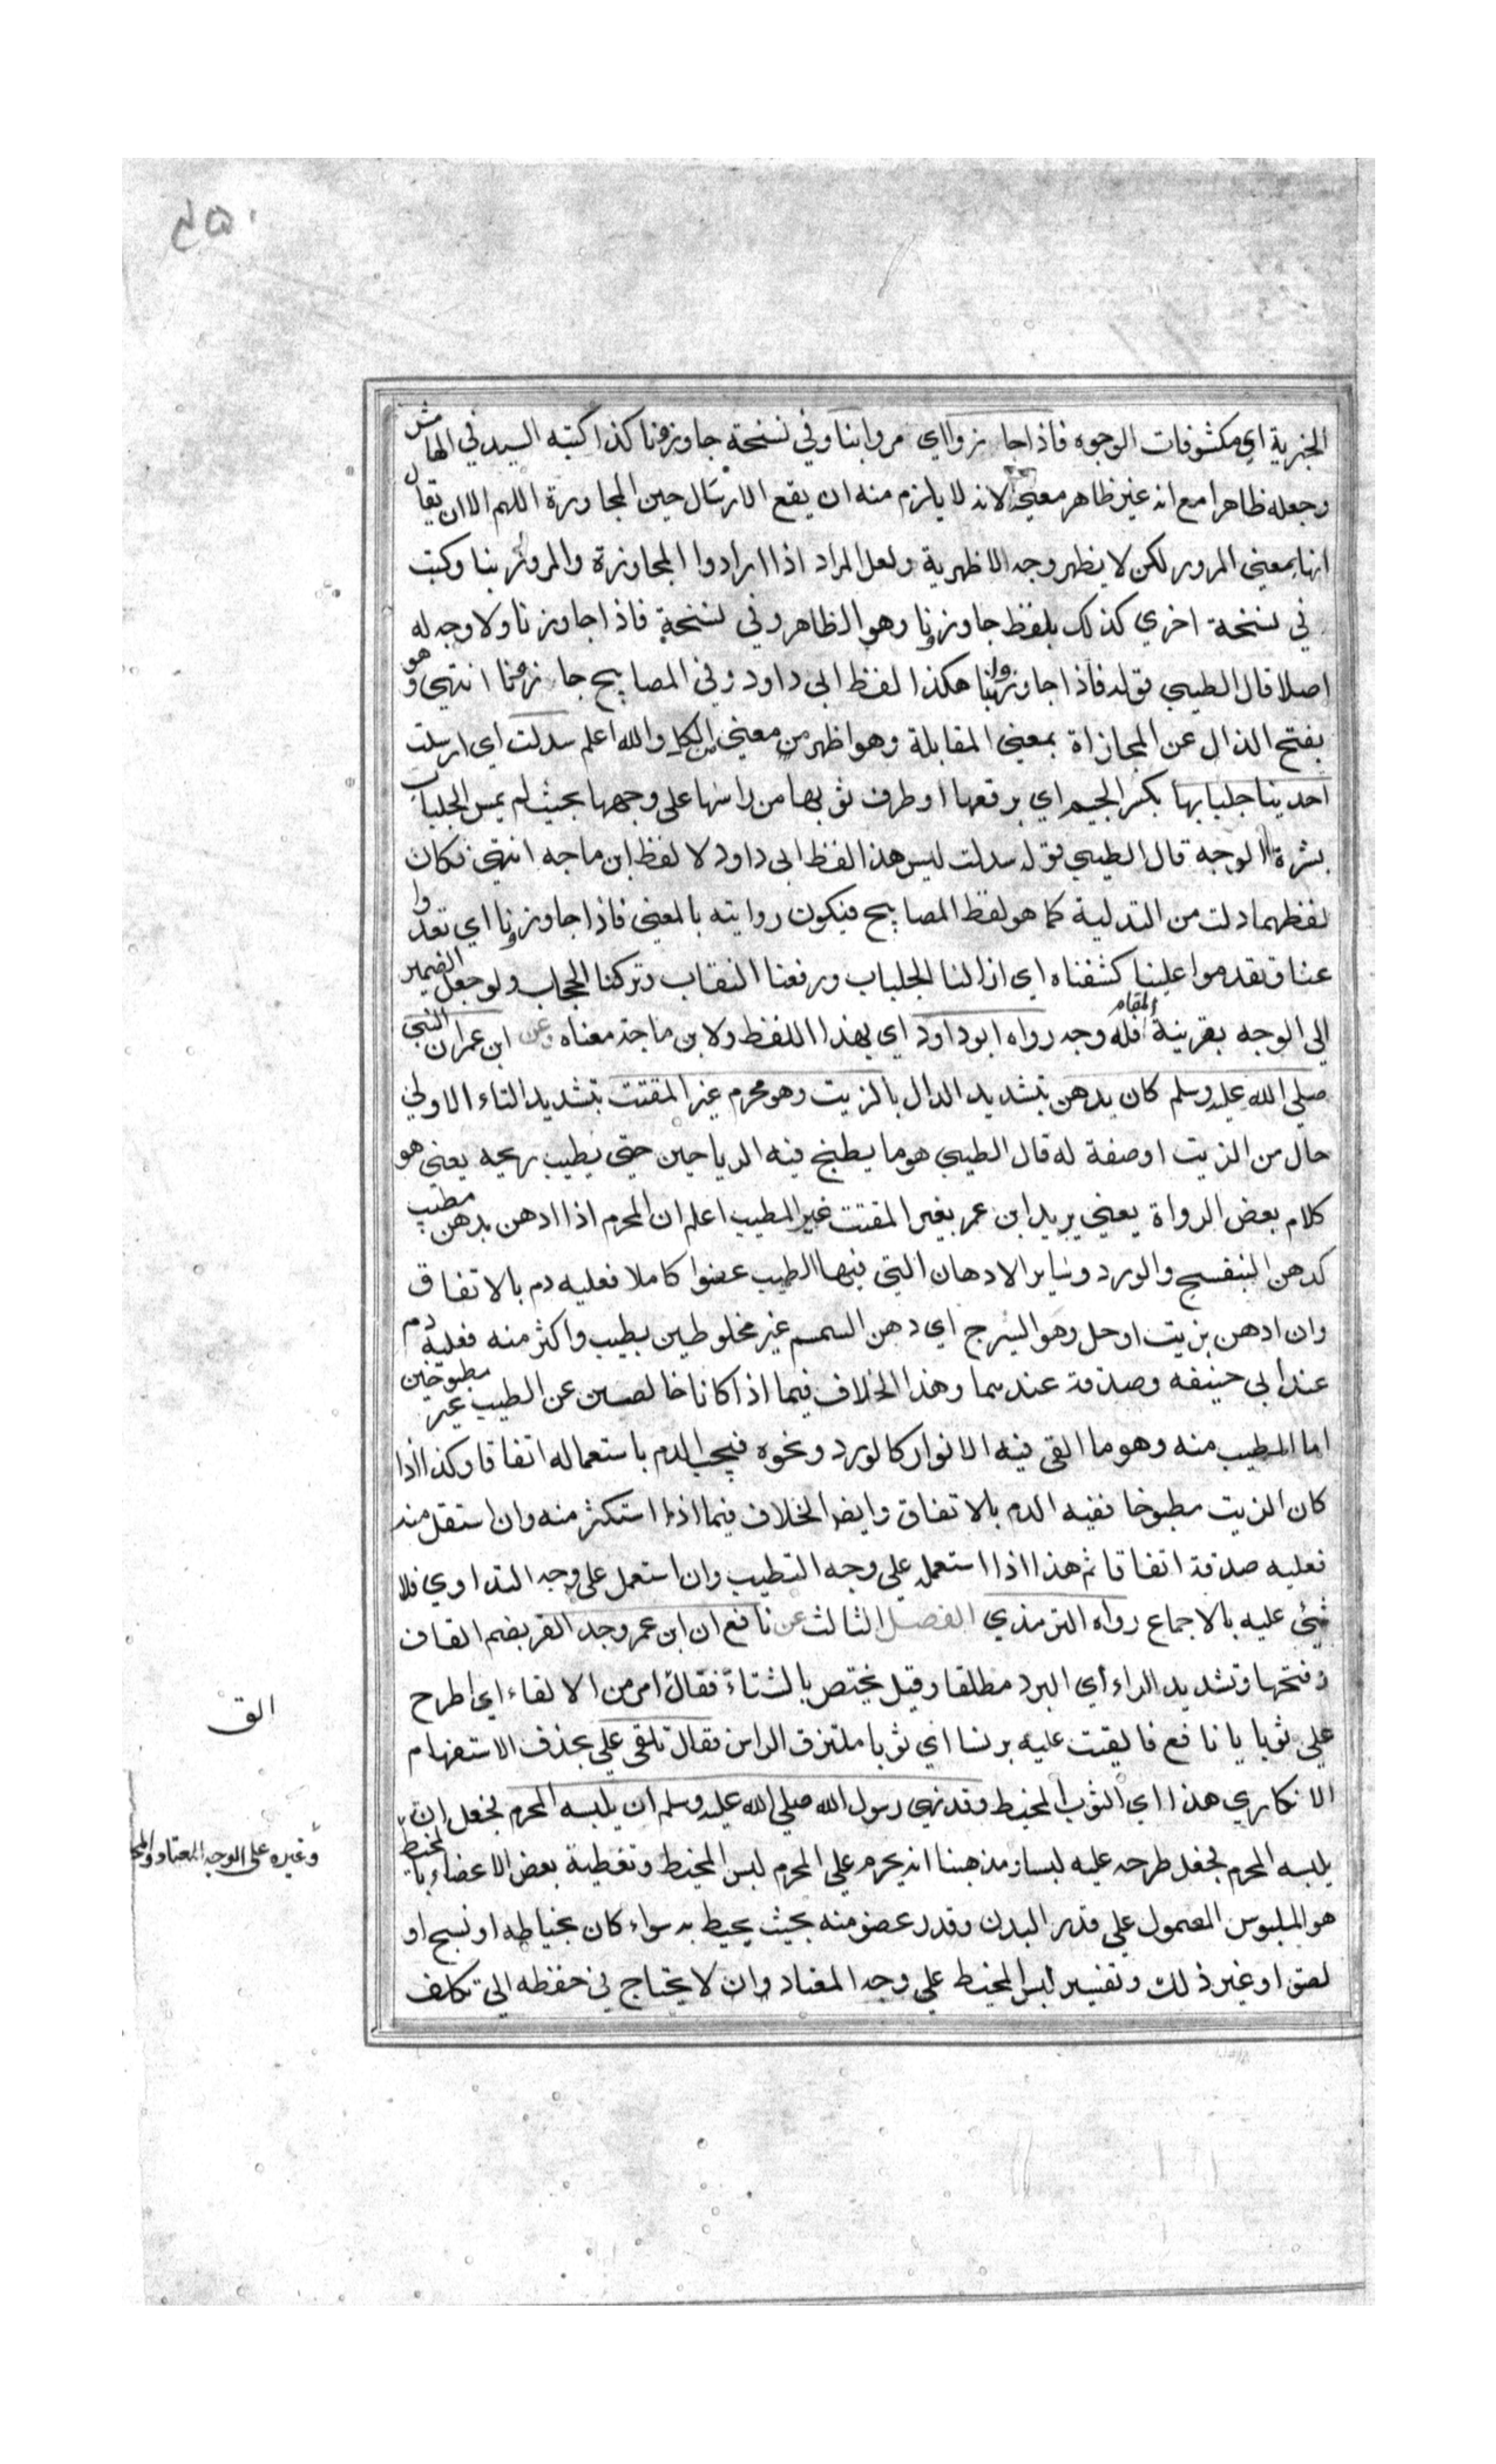 ٤٥٠
الخبرية اي مكشوفات الوجوه فاذا جازوا اي مروا بنا وفي نسخة جاوزونا كذا كتبه السيد في الهامش
وجعله ظاهرا مع انه غير ظاهر معنى لانه لا يلزم منه ان يقع الارسال حين المجاوزة اللهم الا ان يقال
انها بمعنى المرور لكن لا يظهر وجه الاظهرية ولعل المراد اذا ارادوا المجاوزة والمرور بنا وكتب
في نسخة اخري كذلك بلفظ جاوزنا وهو الظاهر وفي نسخة فاذا جاوزنا ولا وجه له
اصلا قال الطيبي قوله فاذا جاوزوا بنا هكذا لفظ ابي داود وفي المصابيح جازونا انتهى وهو
بفتح الذال من المحاذاة بمعنى المقابلة وهو اظهر من معنى الكل والله اعلم سدلت اي ارسلت
احدينا جلبابها بكسر الجيم اي برقعها او طرف ثوبها من راسها على وجهها بحيث لم يمس الجلباب
بشرة الوجه قال الطيبي قوله سدلت ليس هذا لفظ ابي داود لا لفظ ابن ماجه انتهى فكان
لفظهما دلت من التدلية كما هو لفظ المصابيح فيكون روايته بالمعنى فاذا جاوزنا اي تعدوا
عنا وتقدموا علينا كشفناه اي ازلنا الجلباب ورفعنا النقاب وتركنا الحجاب ولو جعل الضمير
الى الوجه بقرينة المقام فله وجه رواه ابو داود اي بهذا اللفظ ولابن ماجة معناه وعن ابن عمر ان النبي
صلى الله عليه وسلم كان يدهن بتشديد الدال بالزيت وهو محرم غير المقتت بتشديد التاء الاولي
حال من الزيت او صفة له قال الطيبي هو ما يطبخ فيه الرياحين حتى يطيب ريحه يعني هو
كلام بعض الرواة يعني يريد ابن عمر بغير المقتت غير المطيب اعلم ان المحرم اذا ادهن بدهن مطيب
كدهن البنفسج والورد وساير الادهان التي فيها الطيب عضوا كاملا فعليه دم بالاتفاق
وان ادهن بزيت او حل وهو الشيرج اي دهن السمسم غير مخلوطين بطيب واكثر منه فعليه دم
عند ابي حنيفه وصدقة عندهما وهذا الخلاف فيما اذا كانا خالصين عن الطيب غير مطبوخين
اما المطيب منه وهو ما القي فيه الانوار كالورد ونحوه فيجب الدم باستعماله اتفاقا وكذا اذا
كان الزيت مطبوخا ففيه الدم بالاتفاق وايضا الخلاف فيما اذا استكثر منه وان استقل منه
فعليه صدقة اتفاقا ثم هذا اذا استعمله علي وجه التطييب وان استعمل على وجه التداوي فلا
شئ عليه بالاجماع رواه الترمذي الفصل الثالث عن نافع ان ابن عمر وجد القر بضم القاف
وفتحها وتشديد الراء اي البرد مطلقا وقيل يختص بالشتاء فقال امر من الالقاء اي اطرح
علي ثوبا يا نافع فالقيت عليه برنسا اي ثوبا ملتزق الراس فقال تلقي علي بحذف الاستفهام
الانكاري هذا اي الثوب المخيط وقد نهي رسول الله صلى الله عليه وسلم ان يلبسه المحرم فجعل ان
يلبسه المحرم فجعل طرحه عليه لبسا ومذهبنا انه يحرم علي المحرم لبس المخيط وتغطية بعض الاعضاء بالمخيط
هو الملبوس المعمول علي قدر البدن وقدر عضو منه بحيث يحيط به سواء كان بخياطه او نسج او
لصق او غير ذلك وتفسير لبس المخيط علي وجه المعتاد وان لا يحتاج في حفظه الي تكلف
الق
وغيره على الوجه المعتاد والمخ